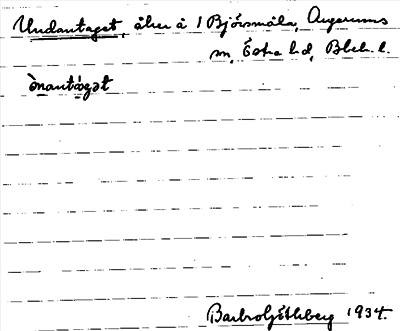 Undantaget, åker å 1 Björsmåla, Augerums
sn, Östra hd, Blek. l.
ònantàgət
Barbro Göthberg 1934.